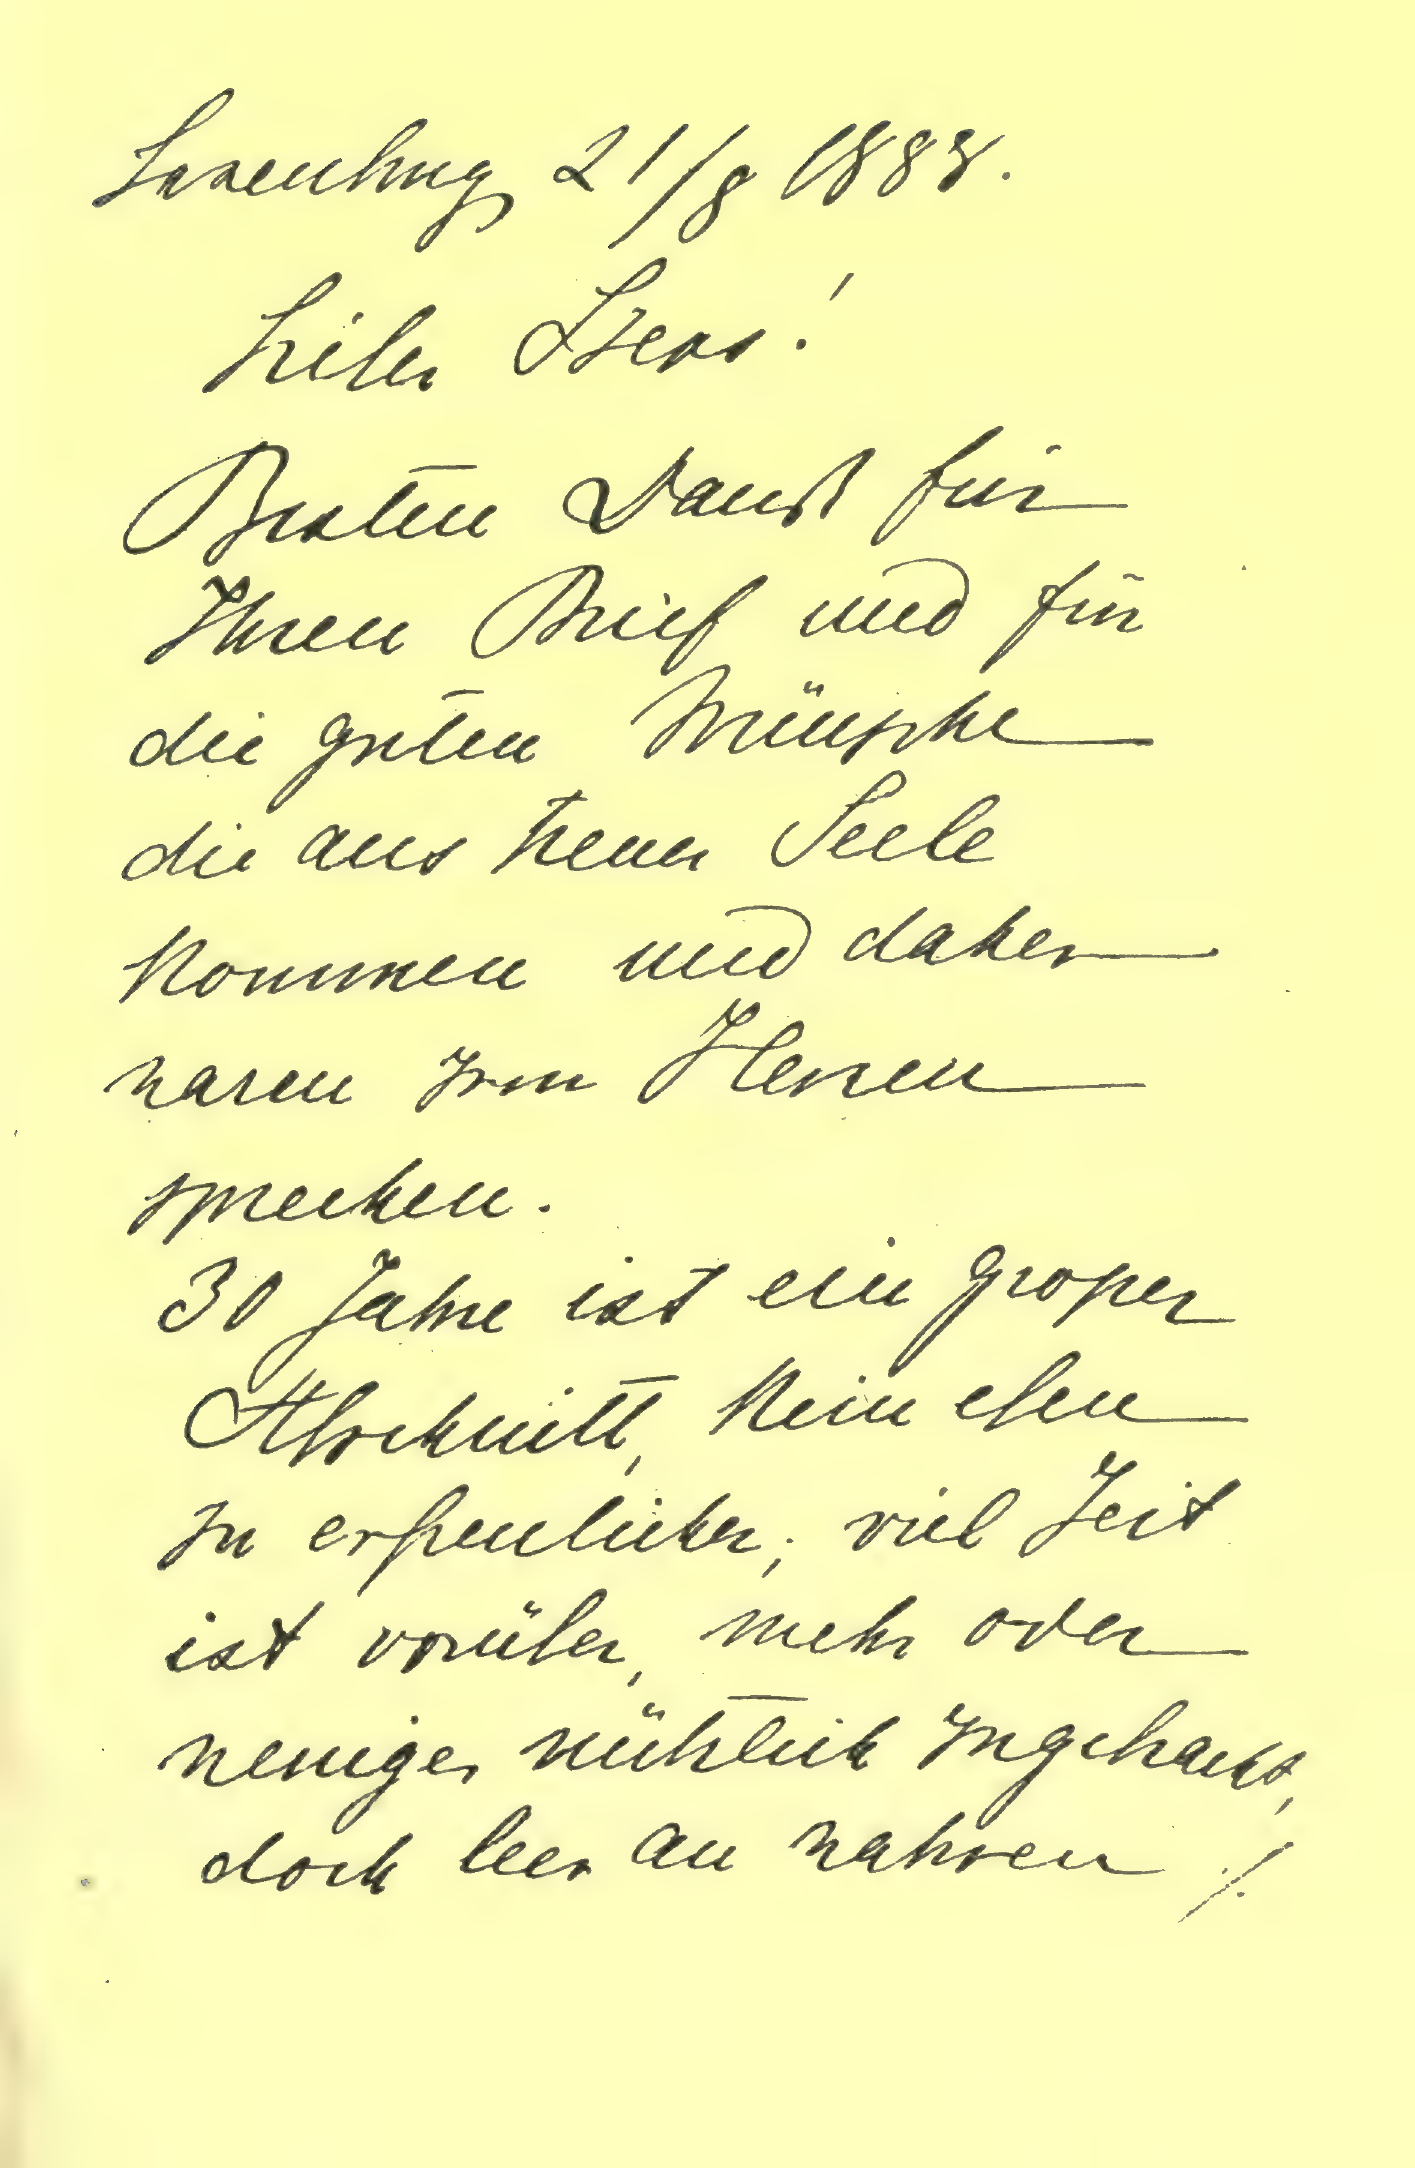 Laxenburg, 21/8 1888.
Lieber Szeps!
Besten Dank für
Ihren Brief und für
die guten Wünsche
die aus treuer Seele
kommen und daher
warm zum Herzen
sprechen.
30 Jahre ist ein großer
Abschnitt, kein eben
zu erfreulicher; viel Zeit
ist vorüber, mehr oder
weniger nützlich zugebracht,
doch leer an wahren ./.